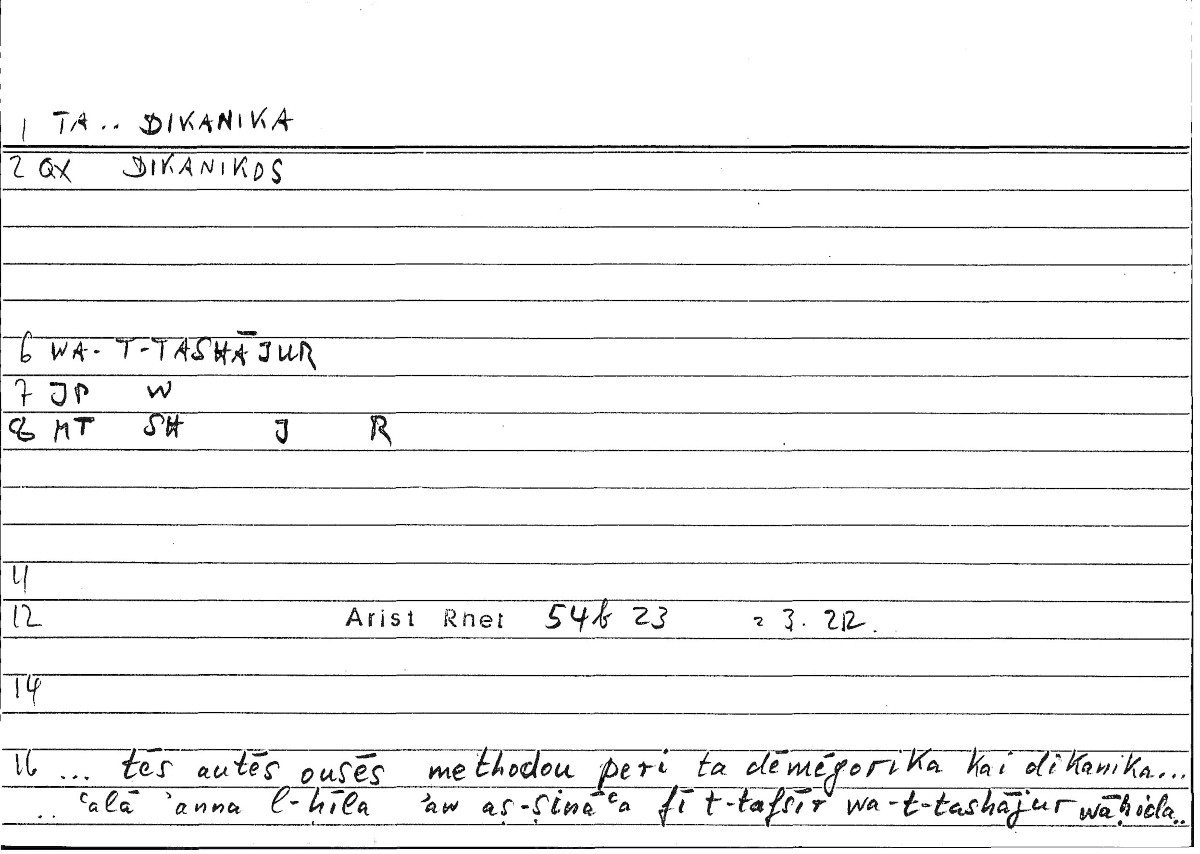 1 TA.. DIKANIKA
2 QX DIKANIKOS
6 WA- T-TASHĀJUR
7 JP W
8 MT SH J R
11
12 Arist Rhet 54b 23 = 3.
14
16 ... tēs autēs ousēs methodou peri ta dēmēgorika kai dikanika...
.. ʿalā ʾanna l-ḥīla ʾaw aṣ-ṣināʿa fī t-tafsīr wa-t-tashājur wāḥida..